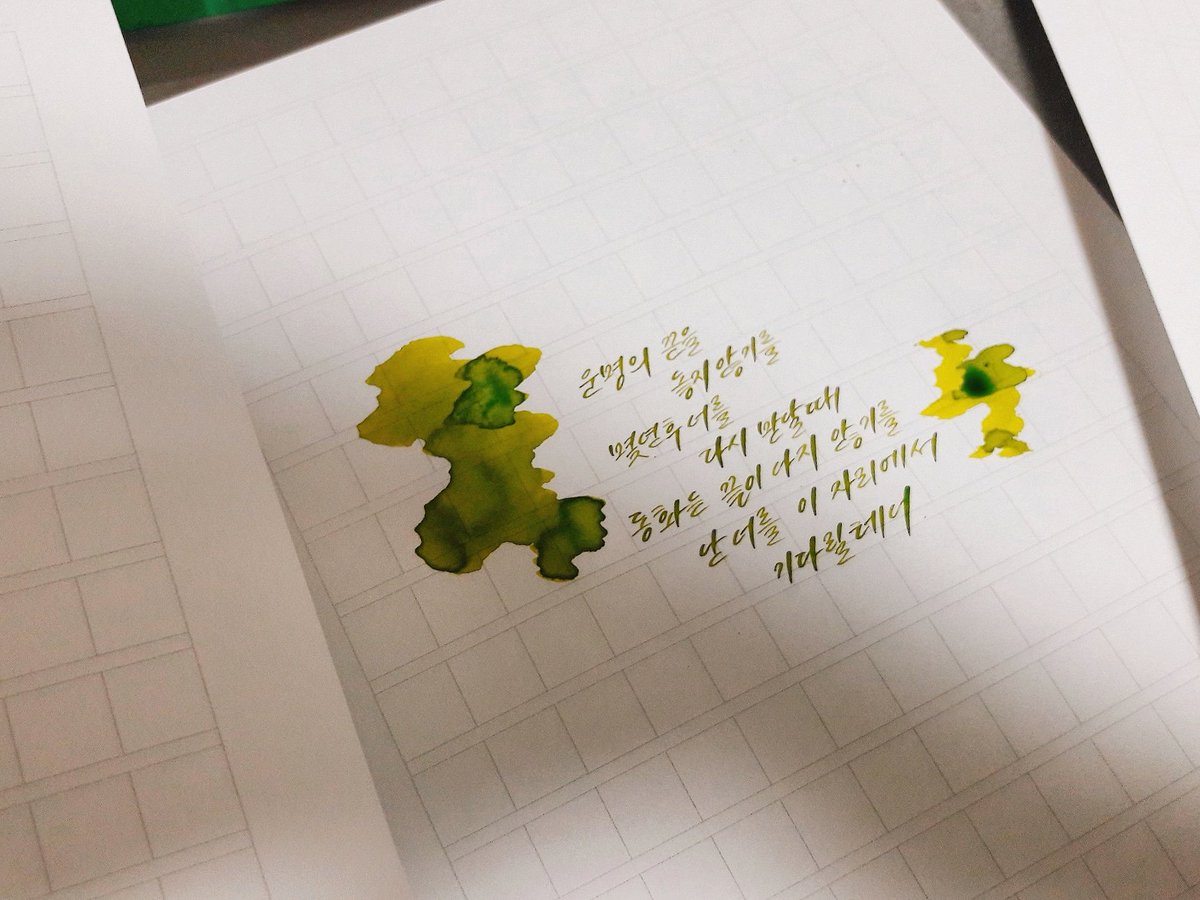 운명의 끈을
놓지 않기를
몇년후 너를
다시 만날때
동화는 끝이 나지 않기를
난 너를 이 자리에서
기다릴테니